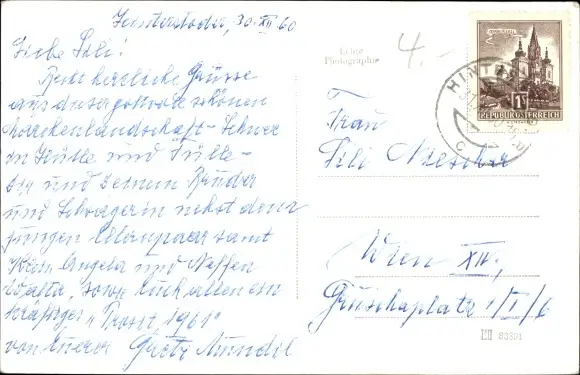 Hinterstoder, 30. XII 60
Liebe Lili!
Recht herzliche Grüsse
aus dieser schönen
Märchenlandschaft - Schnee
in Hülle und Fülle -
Dir und Deinem Bruder
und Schwägerin nebst dem
jungen Elternpaar samt
Klein Angela und Neffen
sowie Euch allen ein
kräftiges "Prosit 1961"
von Eurer
Echte
Photographie
4.-
MARIAZELL
1S
REPUBLIK ÖSTERREICH
HINT
Frau
Lili
Wien XII.,
1/I/6
83391